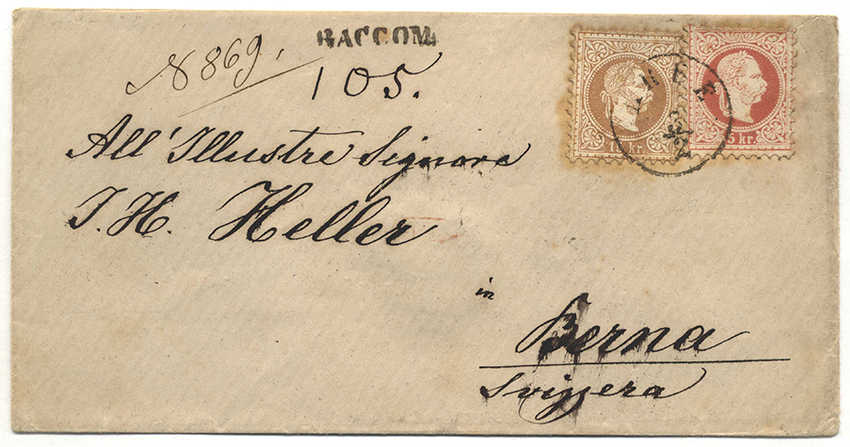 N 869.
RACCOM.
105.
All'Illustre Signore
J. H. Heller
in
Berna
Svizzera
15 kr.
5 kr.